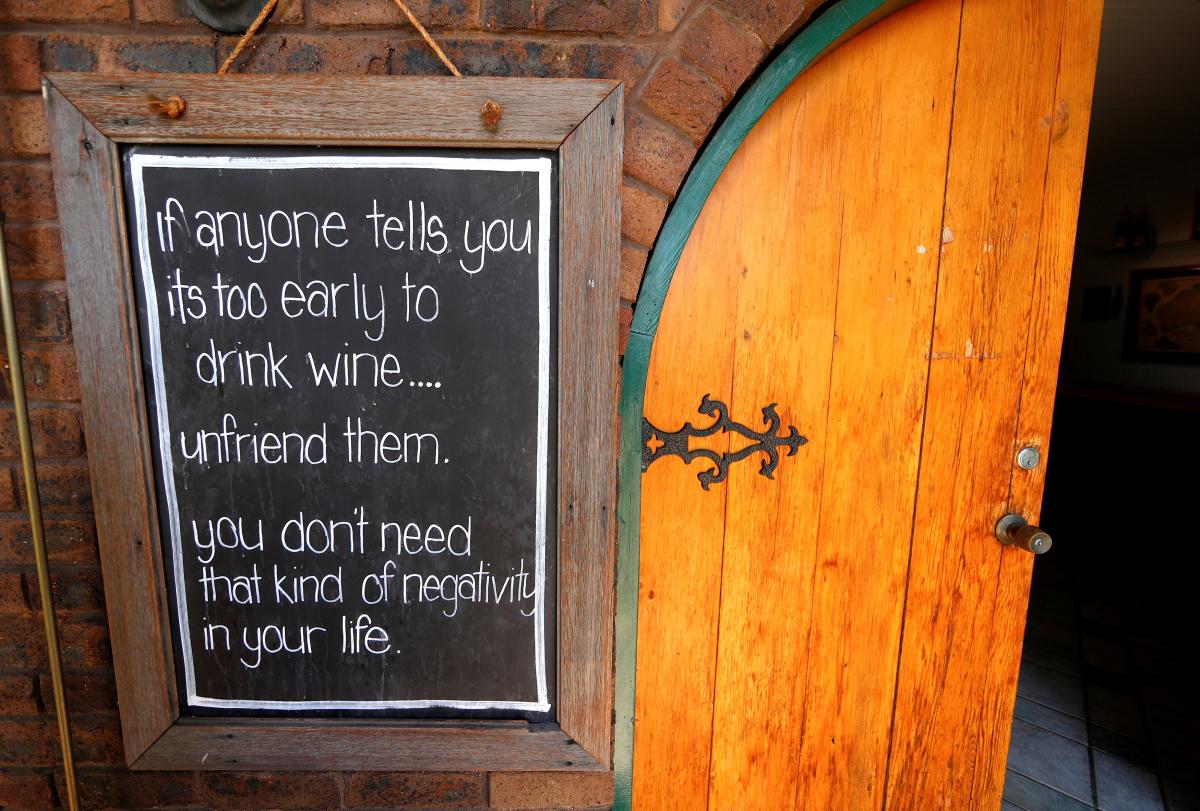 If anyone tells you
its too early to
drink wine....
unfriend them.
you don't need
that kind of negativity
in your life.